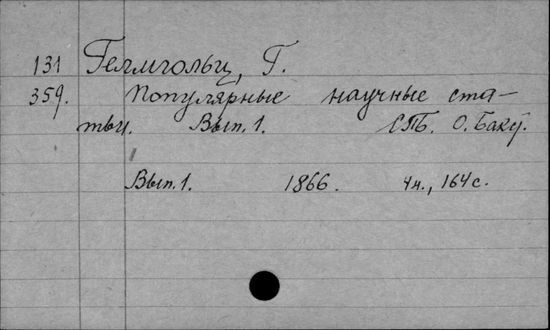 131 Гелмгольц, Г.
359. Популярные научные ста-
тьи. Вып. 1. СПБ. О. Баку.
Вып. 1. 1866. 4н., 164 с.